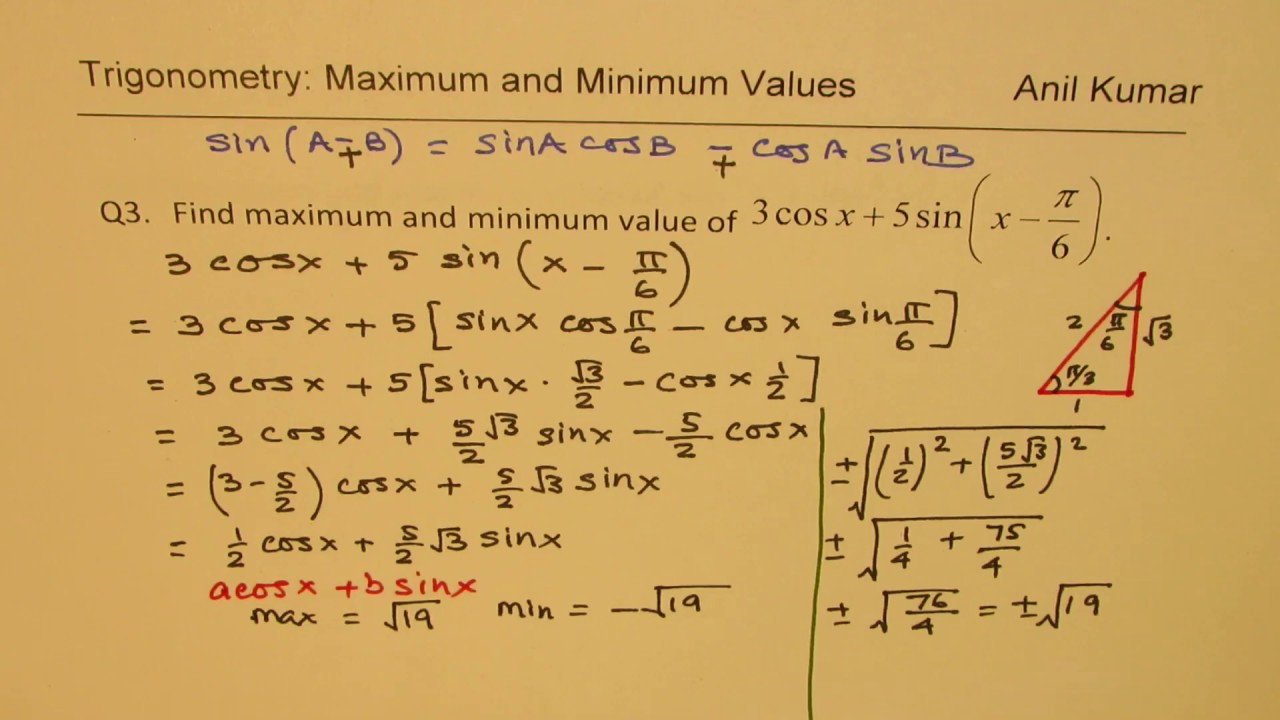 Trigonometry: Maximum and Minimum Values Anil Kumar
sin (A ∓ B) = sinA cosB ∓ cosA sinB
Q3. Find maximum and minimum value of 3 cos x + 5 sin(x − π/6).
3 cosx + 5 sin (x − π/6)
= 3 cosx + 5 [sinx cos π/6 − cosx sin π/6]
2 π/6 √3
= 3 cosx + 5 [sinx · √3/2 − cosx 1/2]
π/3
1
= 3 cosx + 5√3/2 sinx − 5/2 cosx
= (3 − 5/2) cosx + 5/2 √3 sinx
= 1/2 cosx + 5/2 √3 sinx
acosx + b sinx
max = √19 min = −√19
± √((1/2)² + (5√3/2)²)
± √(1/4 + 75/4)
± √(76/4) = ±√19